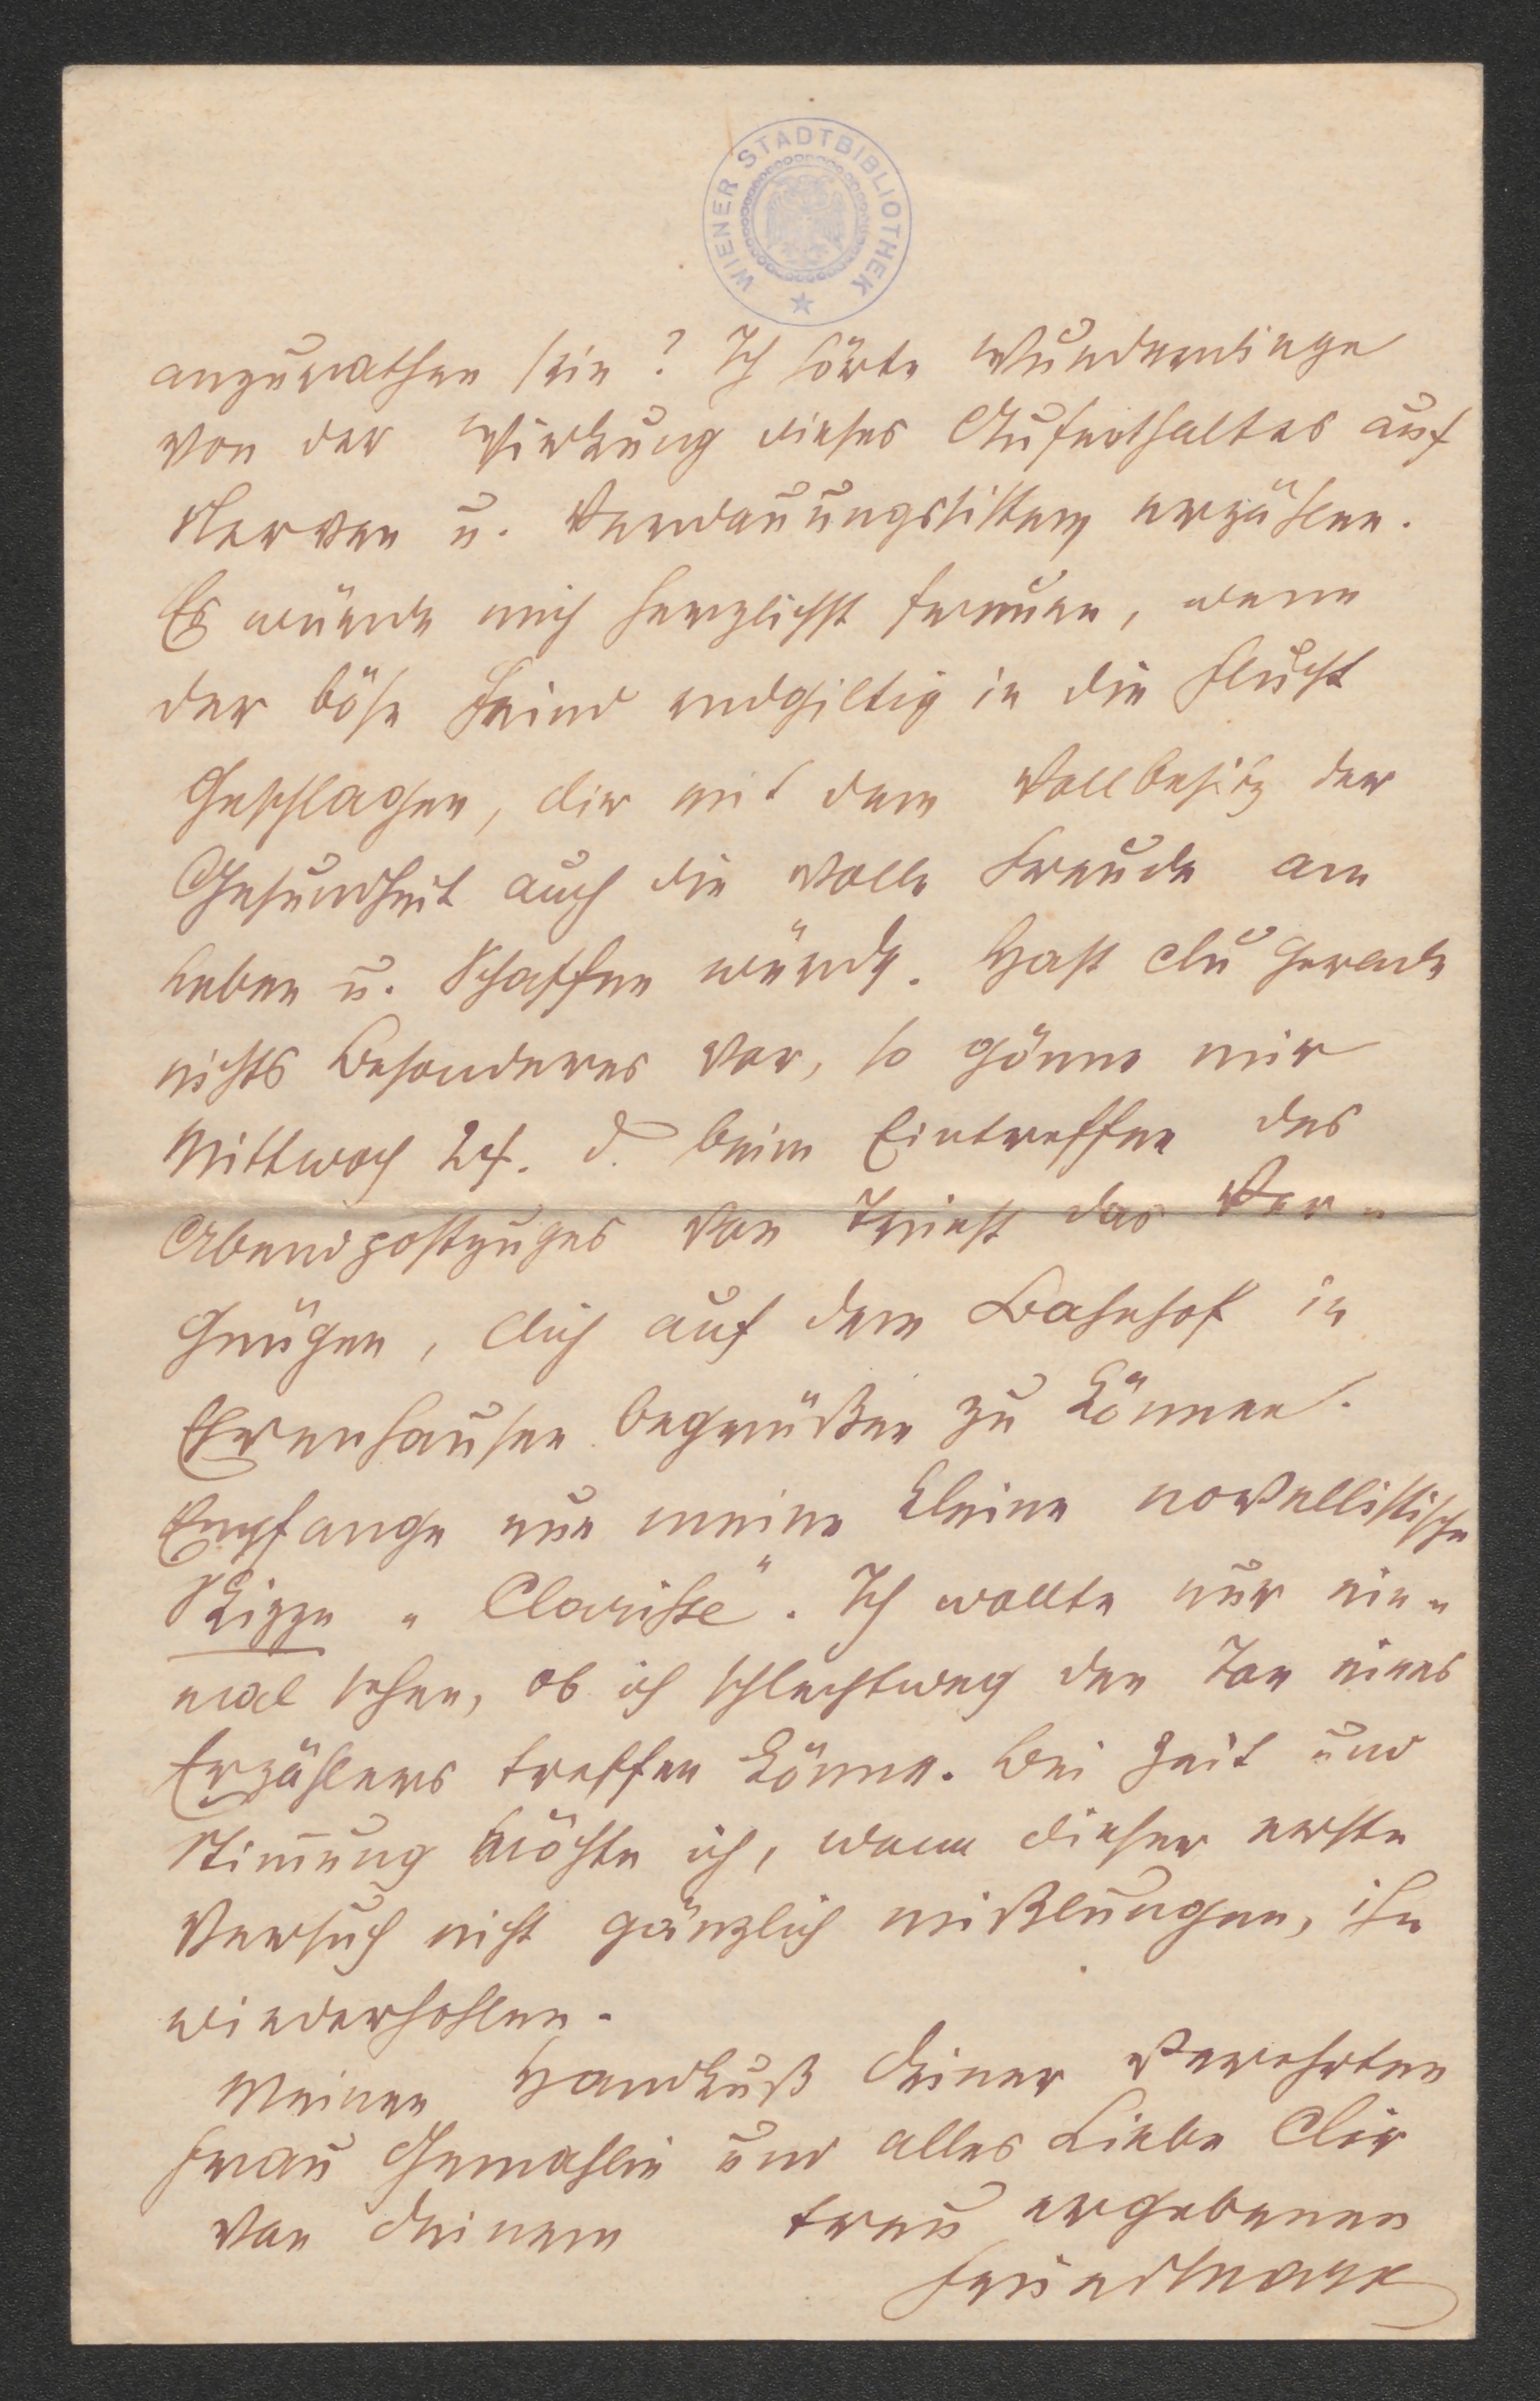 WIENER STADTBIBLIOTHEK
anzurathen sein? Ich hörte Wunderdinge
von der Wirkung dieses Aufenthaltes auf
Nerven u. Verdauungssistem erzählen.
Es würde mich herzlichst freuen, wenn
der böse Feind endgiltig in die Flucht
geschlagen, dir mit dem Vollbesitz der
Gesundheit auch die volle Freude am
Leben u. Schaffen würde. Hast du gerade
nichts Besonderes vor, so gönne mir
Mittwoch 24. d. beim Eintreffen des
Abendpostzuges von Triest das Ver-
gnügen, dich auf dem Bahnhof in
Ehrenhausen begrüßen zu können.
Empfange nun meine kleine novellistische
Skizze „Clarisse". Ich wollte nur ein-
mal sehen, ob ich schlechtweg den Ton eines
Erzählers treffen könne. Bei Zeit und
Stim̄ung möchte ich, wenn dieser erste
Versuch nicht gänzlich mißlungen, ihn
wiederhohlen.
Meinen Handkuß deiner verehrten
Frau Gemahlin und alles Liebe dir
von deinem treu ergebenen